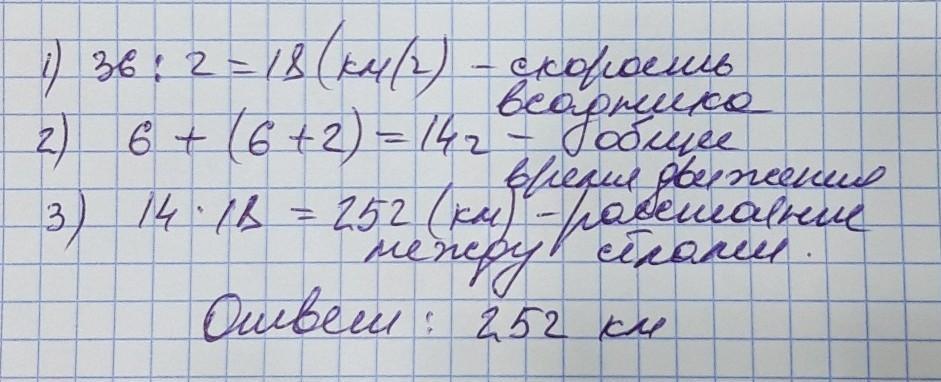 1) 36 : 2 = 18 (км/ч) - скорость
всадника
2) 6 + (6 + 2) = 14 ч - общее
время движения
3) 14 · 18 = 252 (км) - расстояние
между
Ответ : 252 км